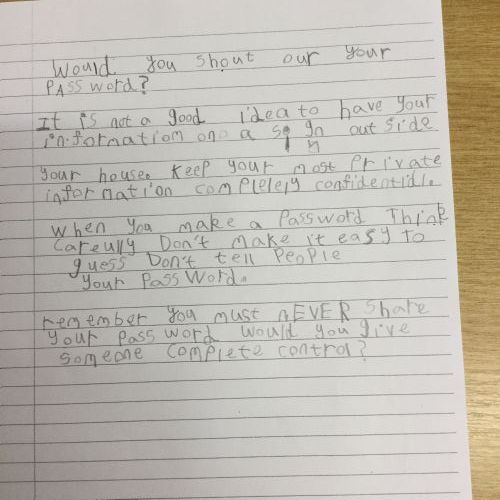 Would you shout our your
PASSword?
It is not a good idea to have your
information ono a sign out side
your house. Keep your most Private
information complelely confidentidl.
When you make a Password Think
Careully Don't make it easy to
guess Don't tell PeoPle
your PassWord.
remember you must nEVER Share
your Password would you give
someone complete control?